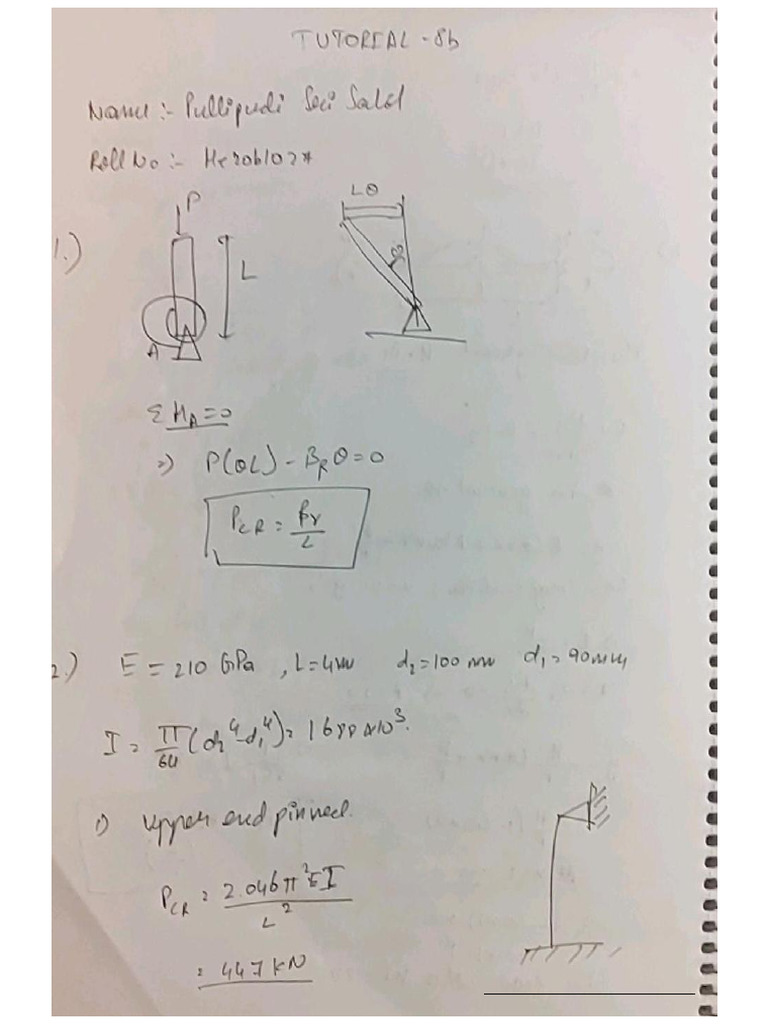 TUTORIAL - 8b
Name :- Pullipudi Sai
Roll No :-
1.)
P
L
A
Lθ
ΣM_A = 0
⇒ P(θL) - β_R θ = 0
P_CR = β_r / L
2.) E = 210 GPa , L = 4m d₂ = 100 mm d₁ = 90mm
I = π/64 (d₂⁴ - d₁⁴) = 1688 × 10³.
1) Upper end pinned.
P_CR = 2.046 π² EI / L²
= 447 kN